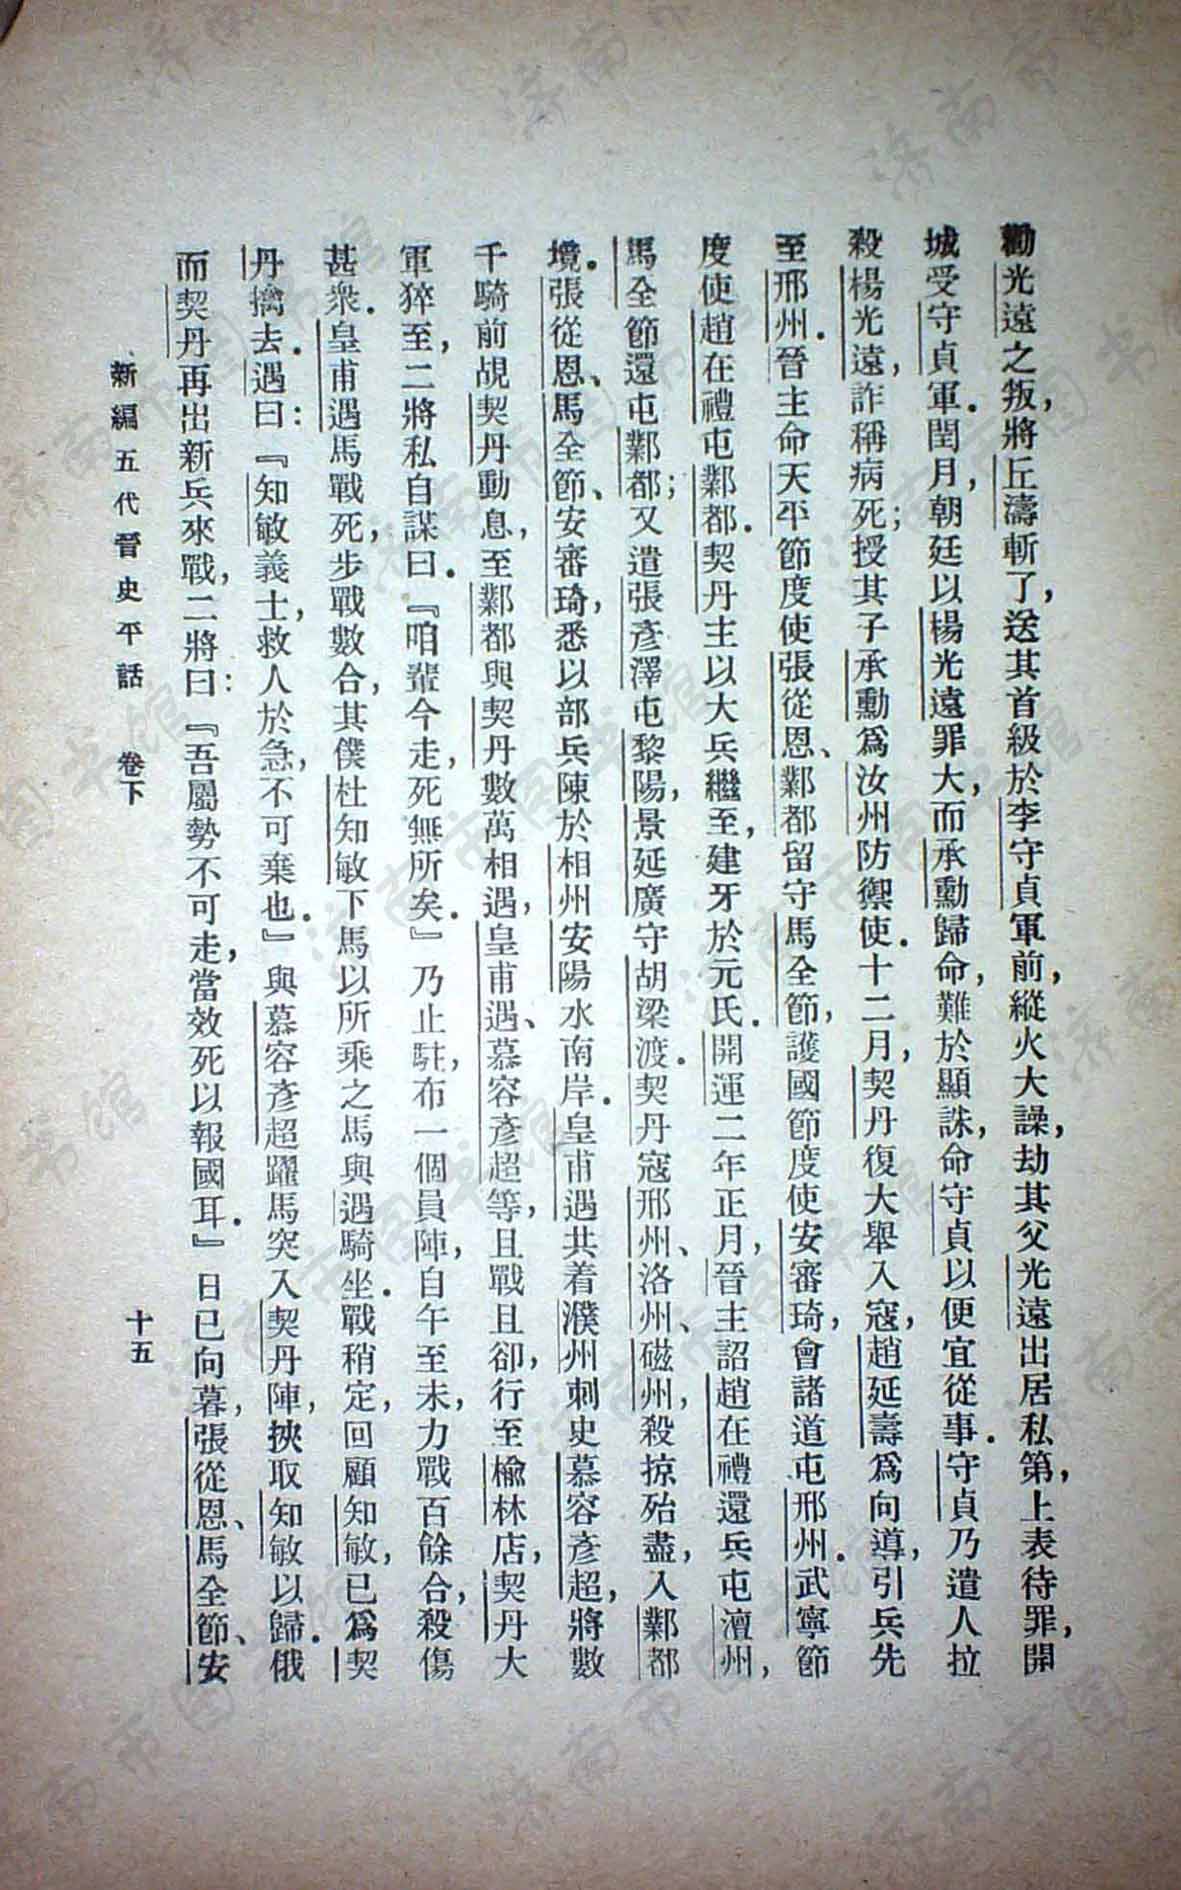 勸光遠之叛，將丘濤斬了，送其首級於李守貞軍前，縱火大譟，劫其父光遠出居私第，上表待罪，開
城受守貞軍．閏月，朝廷以楊光遠罪大，而承勳歸命，難於顯誅，命守貞以便宜從事．守貞乃遣人拉
殺楊光遠，詐稱病死；授其子承勳爲汝州防禦使．十二月，契丹復大舉入寇，趙延壽爲向導，引兵先
至邢州．晉主命天平節度使張從恩、鄴都留守馬全節，護國節度使安審琦，會諸道屯邢州．武寧節
度使趙在禮屯鄴都．契丹主以大兵繼至，建牙於元氏．開運二年正月，晉主詔趙在禮還兵屯澶州，
馬全節還屯鄴都；又遣張彥澤屯黎陽，景延廣守胡梁渡．契丹寇邢州、洺州、磁州，殺掠殆盡，入鄴都
境．張從恩、馬全節、安審琦，悉以部兵陳於相州安陽水南岸．皇甫遇共着濮州刺史慕容彥超，將數
千騎前覘契丹動息，至鄴都與契丹數萬相遇，皇甫遇、慕容彥超等，且戰且卻，行至榆林店，契丹大
軍猝至，二將私自謀曰．『咱輩今走，死無所矣．』乃止駐，布一個員陣，自午至未，力戰百餘合，殺傷
甚衆．皇甫遇馬戰死，步戰數合，其僕杜知敏下馬以所乘之馬與遇騎坐．戰稍定，回顧知敏，已爲契
丹擒去．遇曰：『知敏義士，救人於急，不可棄也．』與慕容彥超躍馬突入契丹陣，挾取知敏以歸．俄
而契丹再出新兵來戰，二將曰：『吾屬勢不可走，當效死以報國耳．』日已向暮，張從恩、馬全節、安
新編五代晉史平話　卷下　十五